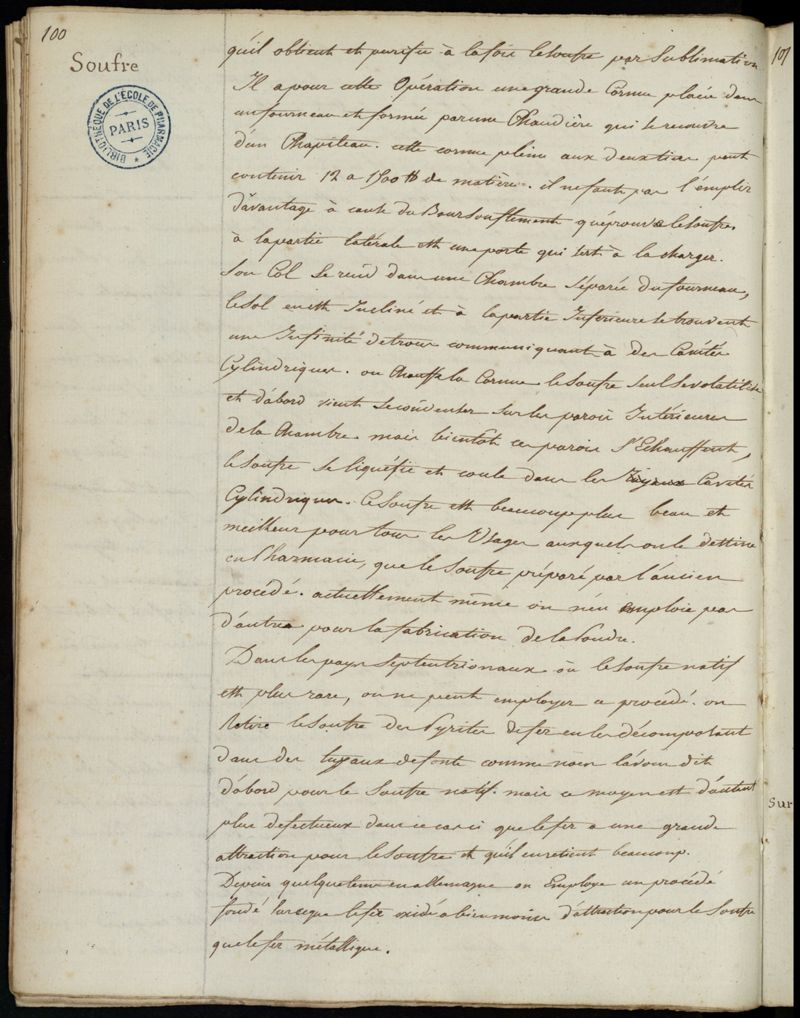 100
Soufre
BIBLIOTHÈQUE DE L'ÉCOLE DE PHARMACIE
PARIS
qu'il obtient et purifie à la fois le soufre par sublimation
Il a pour cette Opération une grande Cornue placée dans
un fourneau et formée par une Chaudière qui se recouvre
d'un Chapiteau. cette cornue pleine aux deux tiers peut
contenir 12 a 1500 ℔ de matière. il ne faut pas l'emplir
d'avantage à cause du Boursouflement qu'éprouve le soufre.
à la partie latérale est une porte qui sert à la charger.
Son Col se rend dans une Chambre séparée du fourneau,
le sol en est Incliné et à la partie Inférieure se trouvent
une Infinité de trous communiquant à des Cavités
Cylindriques. on Chauffe la Cornue le soufre seul se volatilise
et d'abord vient se condenser sur les parois Intérieures
de la Chambre. mais bientôt ces parois s'Echauffent,
le soufre se liquéfie et coule dans les Cavités
Cylindriques. Ce soufre est beaucoup plus beau et
meilleur pour tous les Usages auxquels on le destine
en Pharmacie, que le soufre préparé par l'ancien
procédé. actuellement même on n'en emploie pas
d'autre pour la fabrication de la Poudre.
Dans les pays septentrionaux où le soufre natif
est plus rare, on ne peut employer ce procédé. on
Retire le soufre des Pyrites de fer en les décomposant
dans des tuyaux de fonte comme nous l'avons dit
d'abord pour le soufre natif. mais ce moyen est d'autant
plus defectueux dans ce cas ci que le fer a une grande
attraction pour le soufre et qu'il en retient beaucoup.
Depuis quelque tems en allemagne on Employe un procédé
fondé sur ce que le fer oxidé a bien moins d'attraction pour le soufre
que le fer métallique.
101
Sur